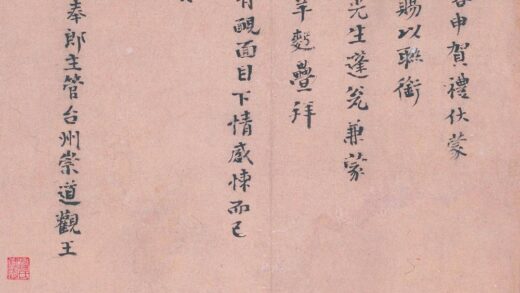 申賀禮伏蒙
賜以聯銜
先生蓬翁兼蒙
羊麪疊拜
有靦面目下情感悚而已
奉郎主管台州崇道觀王